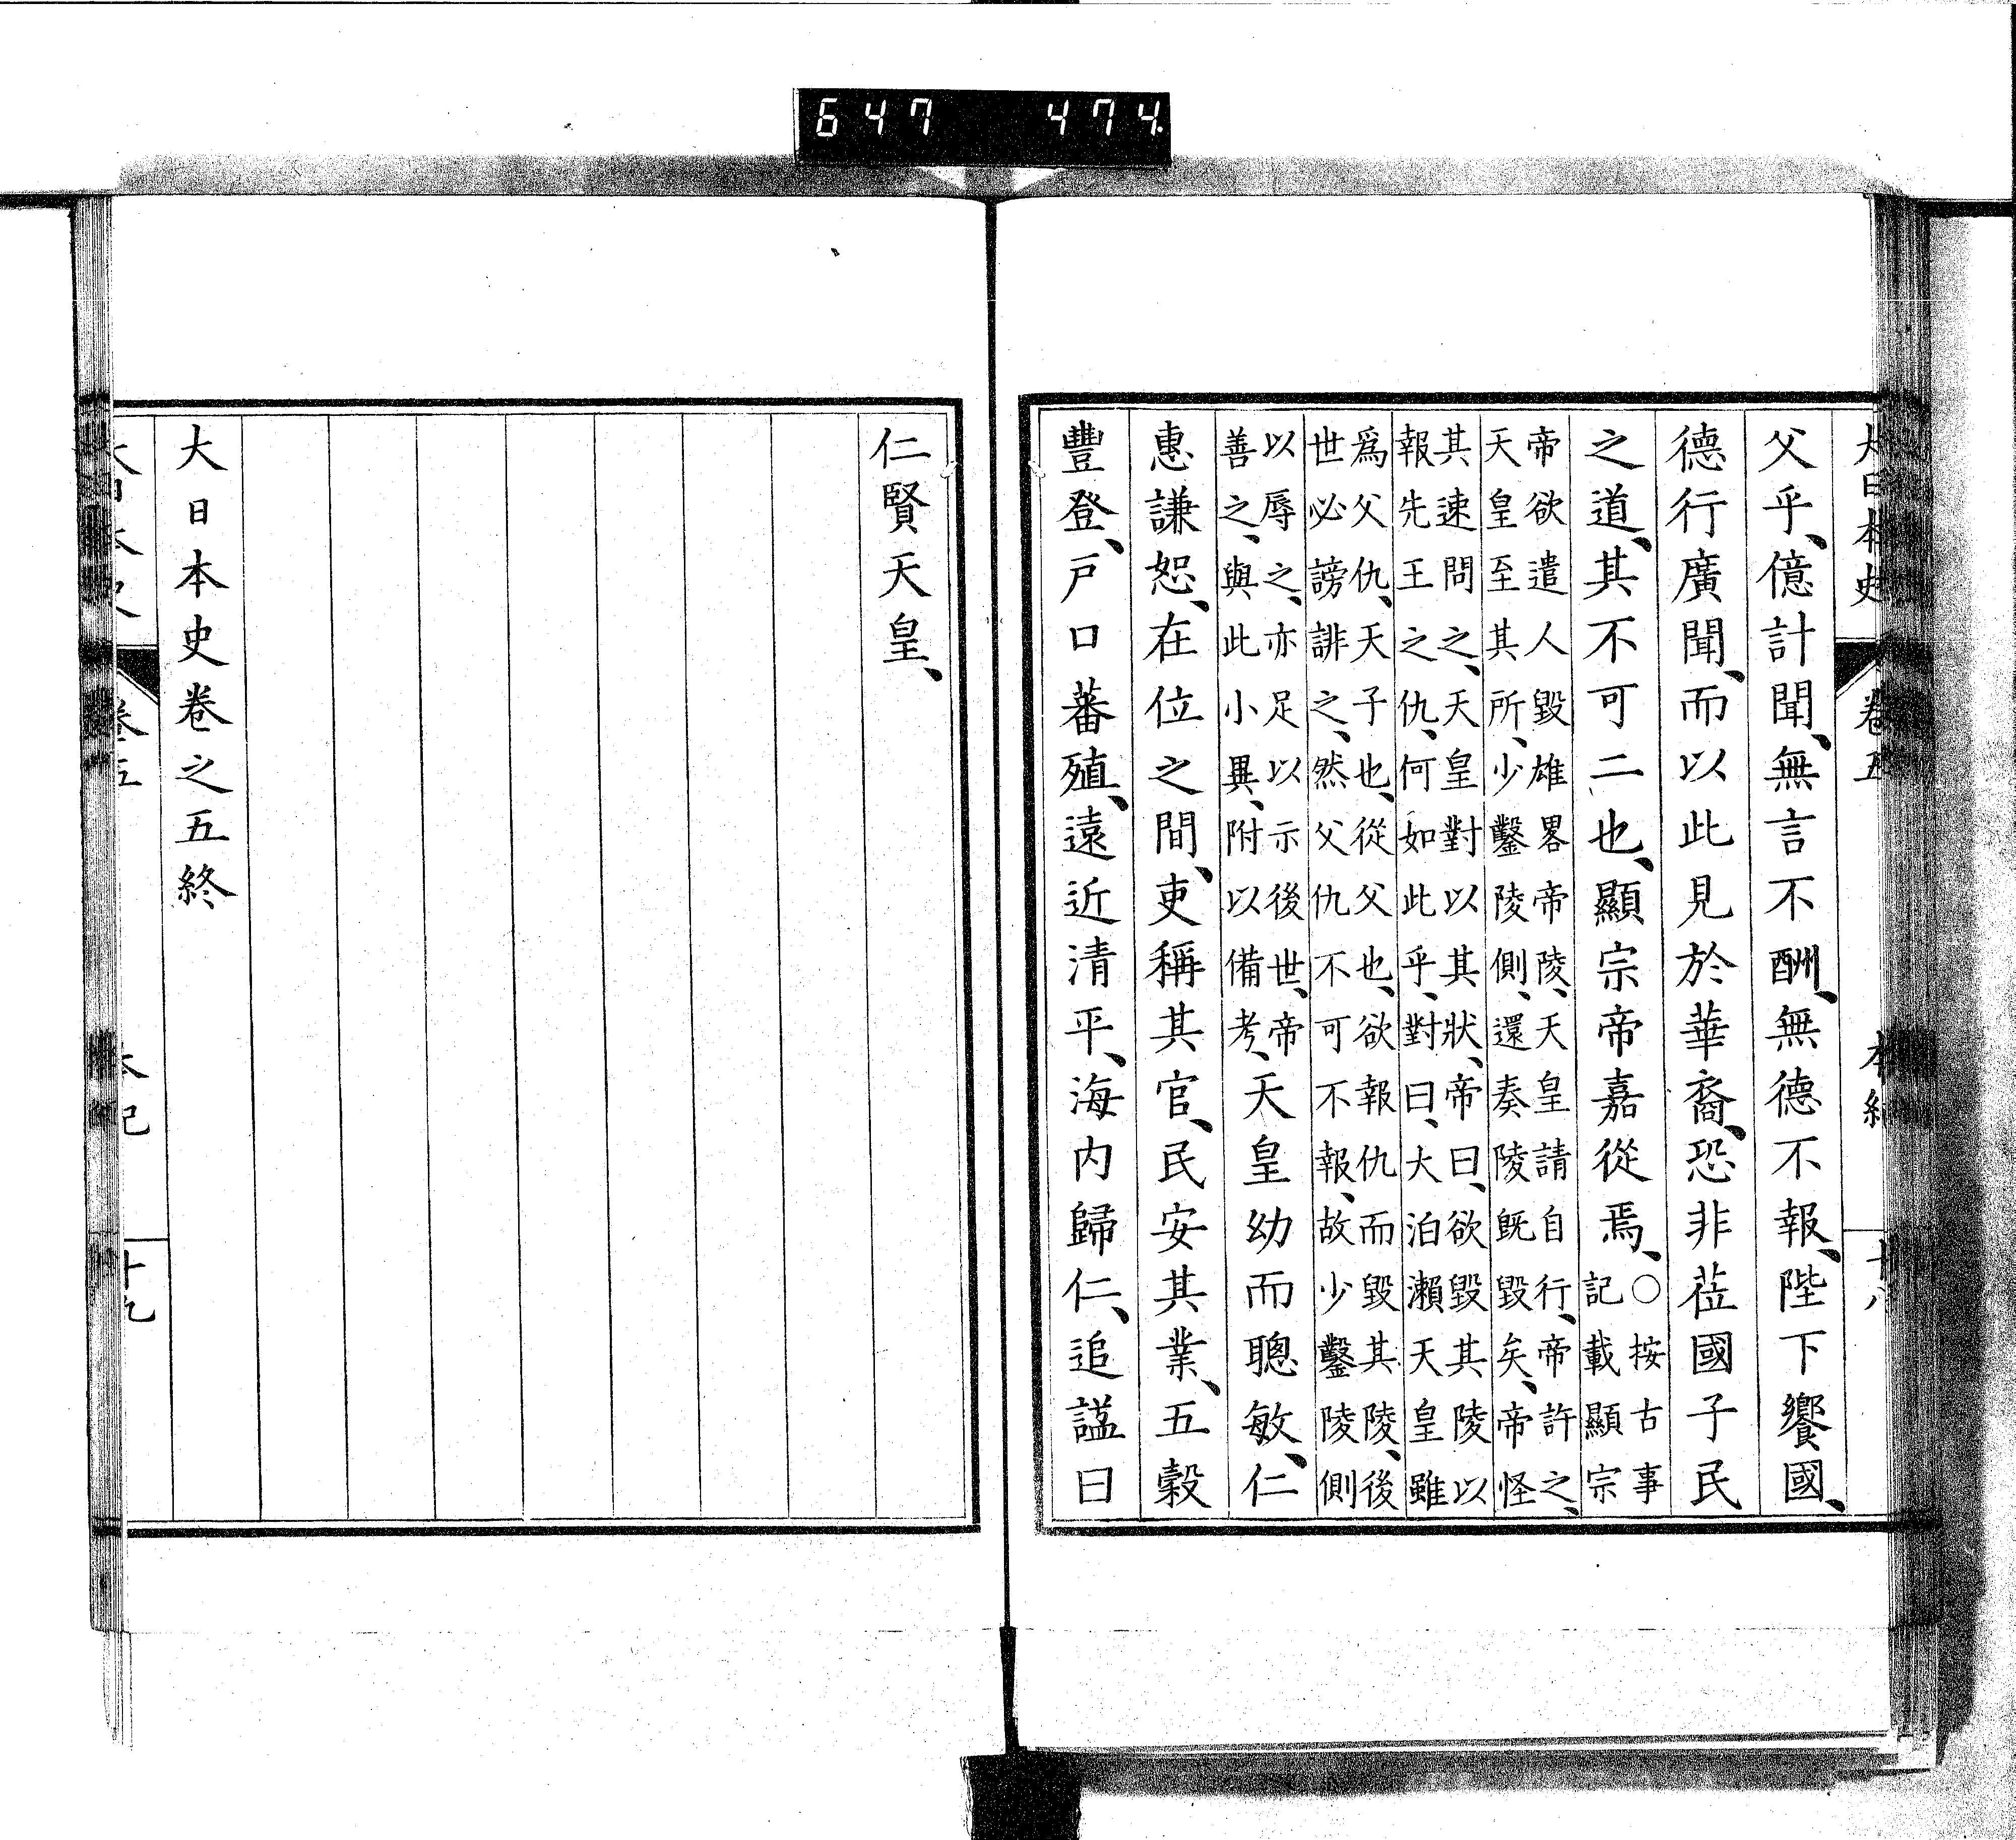 647 474
大日本史 卷五 本紀 十八
父乎、億計聞、無言不酬、無德不報、陛下饗國、
德行廣聞、而以此見於華裔、恐非莅國子民
之道、其不可二也、顯宗帝嘉從焉、○按古事
記載顯宗
帝欲遣人毀雄畧帝陵、天皇請自行、帝許之、
天皇至其所、少鑿陵側、還奏陵既毀矣、帝怪
其速問之、天皇對以其狀、帝曰、欲毀其陵以
報先王之仇、何如此乎、對曰、大泊瀨天皇雖
爲父仇、天子也、從父也、欲報仇而毀其陵、後
世必謗誹之、然父仇不可不報、故少鑿陵側
以辱之、亦足以示後世、帝
善之、與此小異、附以備考、天皇幼而聰敏、仁
惠謙恕、在位之間、吏稱其官、民安其業、五穀
豐登、戸口蕃殖、遠近清平、海内歸仁、追謚曰
仁賢天皇、
大日本史卷之五終
大日本史 卷五 本紀 十九